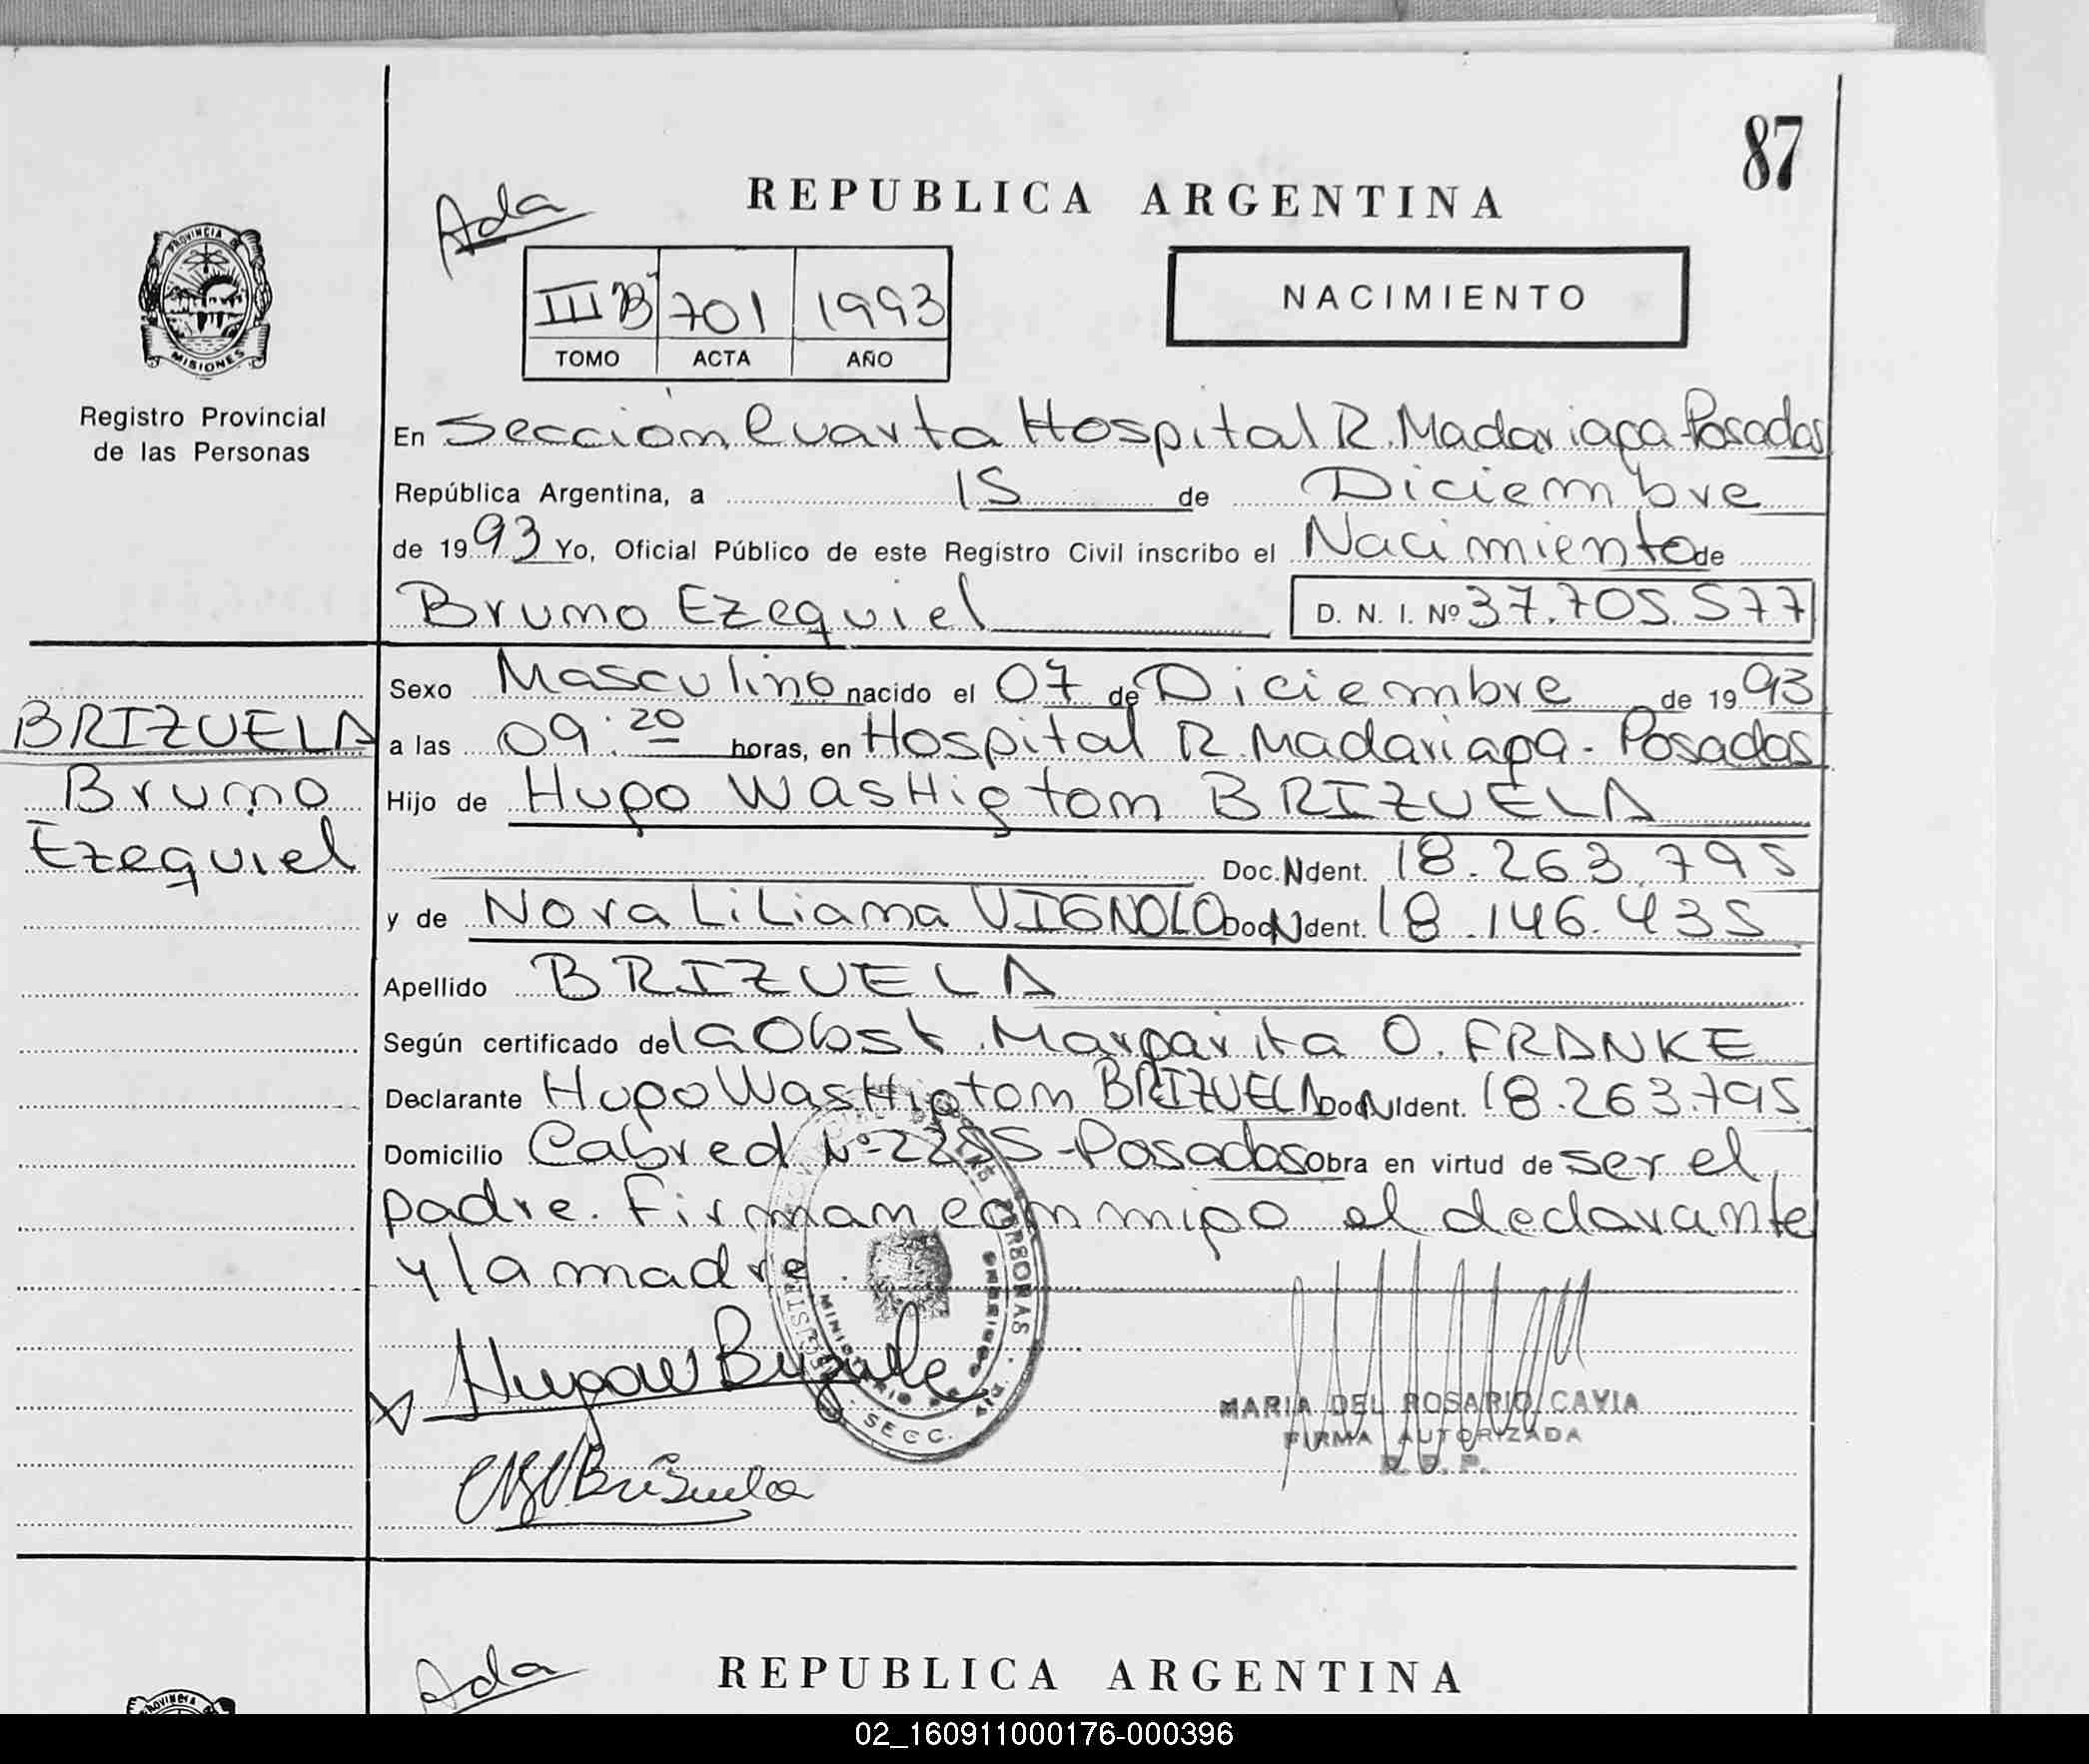 87
Ada
REPUBLICA ARGENTINA
PROVINCIA DE
MISIONES
III B 701 1993
TOMO ACTA AÑO
NACIMIENTO
Registro Provincial
de las Personas
En Sección Cuarta Hospital R. Madariaga Posadas
República Argentina, a 15 de Diciembre
de 1993 Yo, Oficial Público de este Registro Civil inscribo el Nacimiento de
Bruno Ezequiel D. N. I. Nº 37.705.577
BRIZUELA
Bruno
Ezequiel
Sexo Masculino nacido el 07 de Diciembre de 1993
a las 09:20 horas, en Hospital R. Madariaga - Posadas
Hijo de Hugo WasHigton BRIZUELA
Doc. N Ident. 18.263.795
y de Nora Liliana VIGNOLO Doc N Ident. 18.146.435
Apellido BRIZUELA
Según certificado de la Obst. Margarita O. FRANKE
Declarante Hugo WasHigton BRIZUELA Doc N Ident. 18.263.795
Domicilio Cabred Nº 2255 - Posadas Obra en virtud de ser el
padre. Firman conmigo el declarante
y la madre.
MINISTERIO
SECC.
PERSONAS
MARIA DEL ROSARIO CAVIA
FIRMA AUTORIZADA
R. P. P.
Ada
REPUBLICA ARGENTINA
02_160911000176-000396